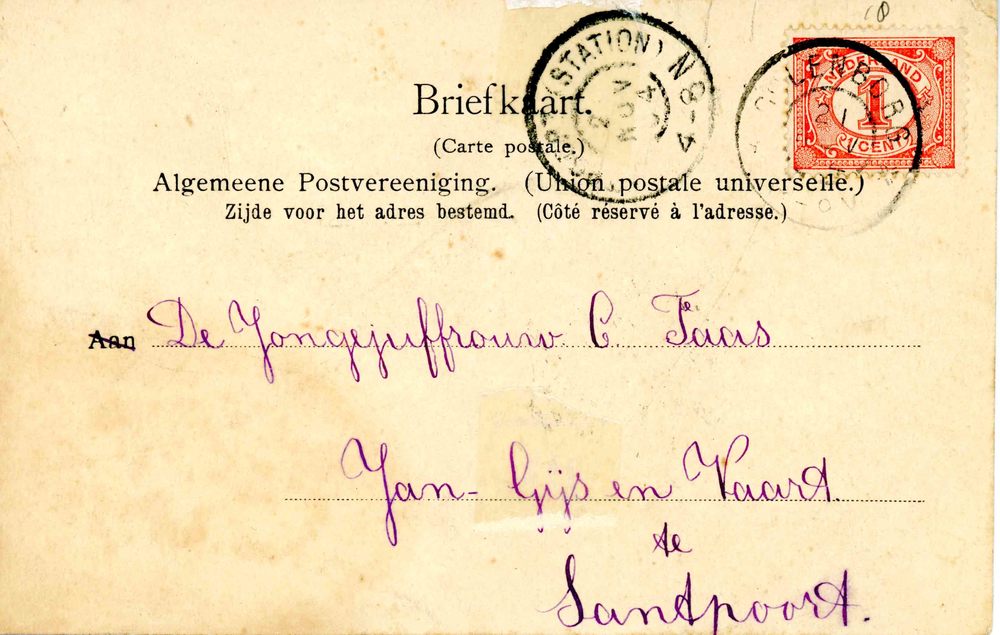 8
Briefkaart.
(Carte postale.)
Algemeene Postvereeniging. (Union postale universelle.)
Zijde voor het adres bestemd. (Côté réservé à l'adresse.)
NEDERLAND
1
CENT
(STATION)
N 8-4
NOV
Aan De Jongejuffrouw C. Faas
Jan-Gijsen Vaart
te
Santpoort.